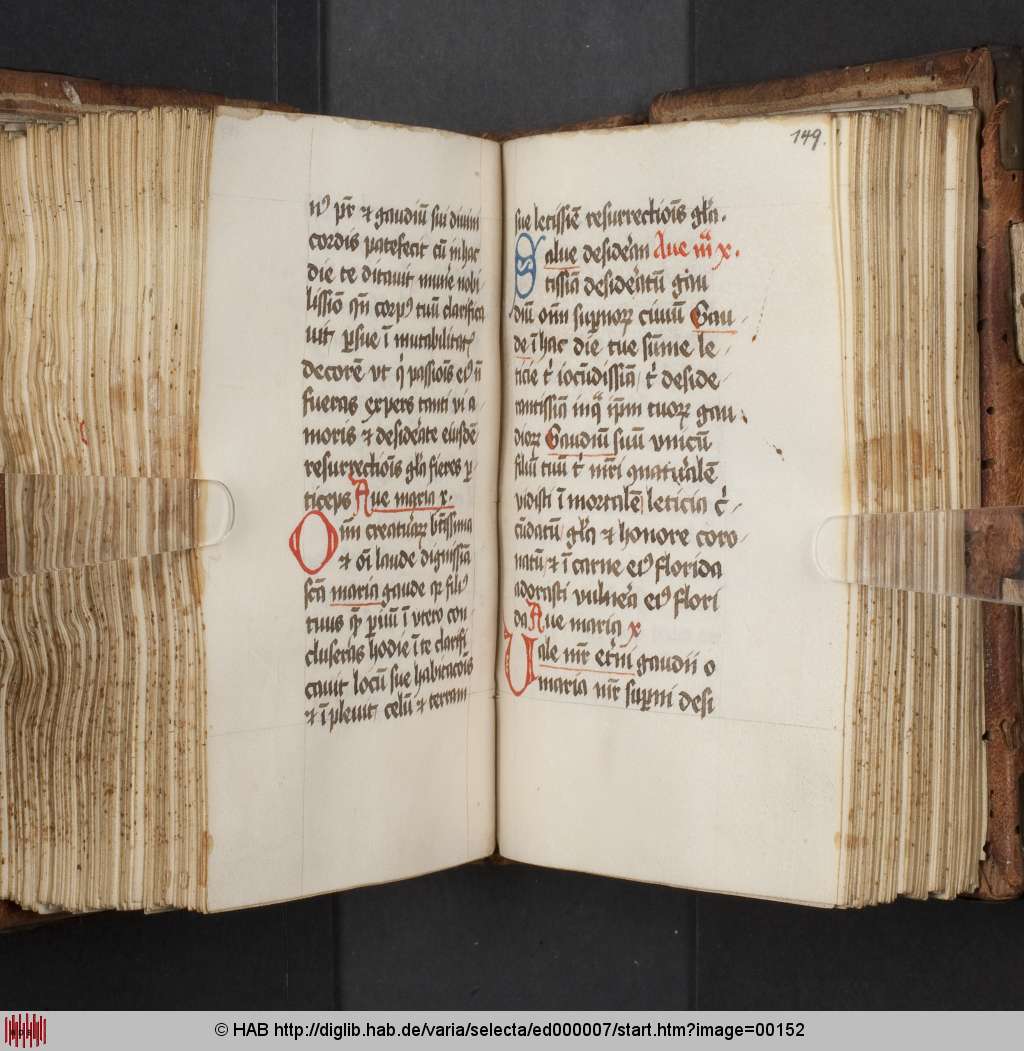 pr̄ & gaudiū sui divini
cordis patefecit cū in hac
die te ditavit mune̛ nobi
lissīo qn̄ corpꝰ tuū clarifica
vit ī mutabilitatꝭ
decorē vt passiōis eiꝰ n̄
fueras expers tanti vi a
moris & desidere̛nte eiusdē
resurrectiōis gl̄a fieres ꝑ
ticeps Ave maria x.
Om̄ creaturaꝝ bt̄issima
& oī laude dignissīa
sc̄a maria gaude qꝛ filiꝰ
tuus ī vtero con
cluseras hodie ī te clarifi
cavit locū sue habitacōis
& īplevit celū & terram
149.
sue letissīe resurrectiōis gl̄a.
Salve desider̛an Ave mͣ x.
tissīa desider̛atū gau
diū oīm suꝑnoꝝ civiū Gau
de ī hac die tue sūme le
ticie & iocūdissīa & deside
rantissīa ip̄m tuoꝝ gau
dioꝝ Gaudiū suū vnicū
filiū tuū & nr̄i
vidisti ī mortalē leticia c̛
cūdatū gl̄a & honore coro
natū & ī carne eiꝰ florida
adorasti vulne̛a eiꝰ flori
da Ave maria x
Vale mr̄ et̛ni gaudii o
maria mr̄ suꝑni desi
© HAB http://diglib.hab.de/varia/selecta/ed000007/start.htm?image=00152